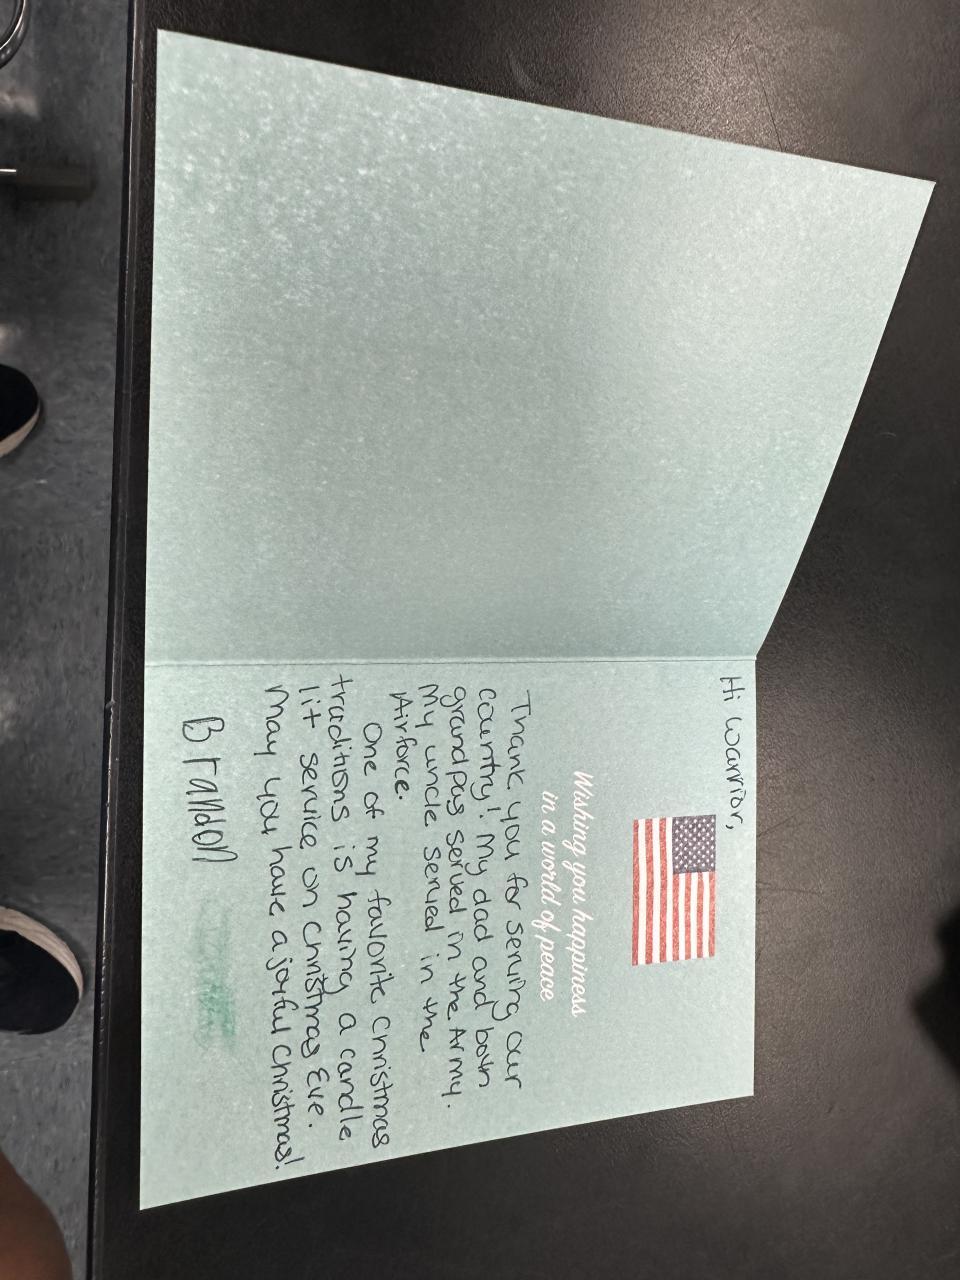 Hi Warrior,
Wishing you happiness
in a world of peace
Thank you for serving our
country! My dad and both
grandpas served in the Army.
My uncle served in the
Airforce.
One of my favorite Christmas
traditions is having a candle
lit service on Christmas Eve.
May you have a joyful Christmas!
Brandon